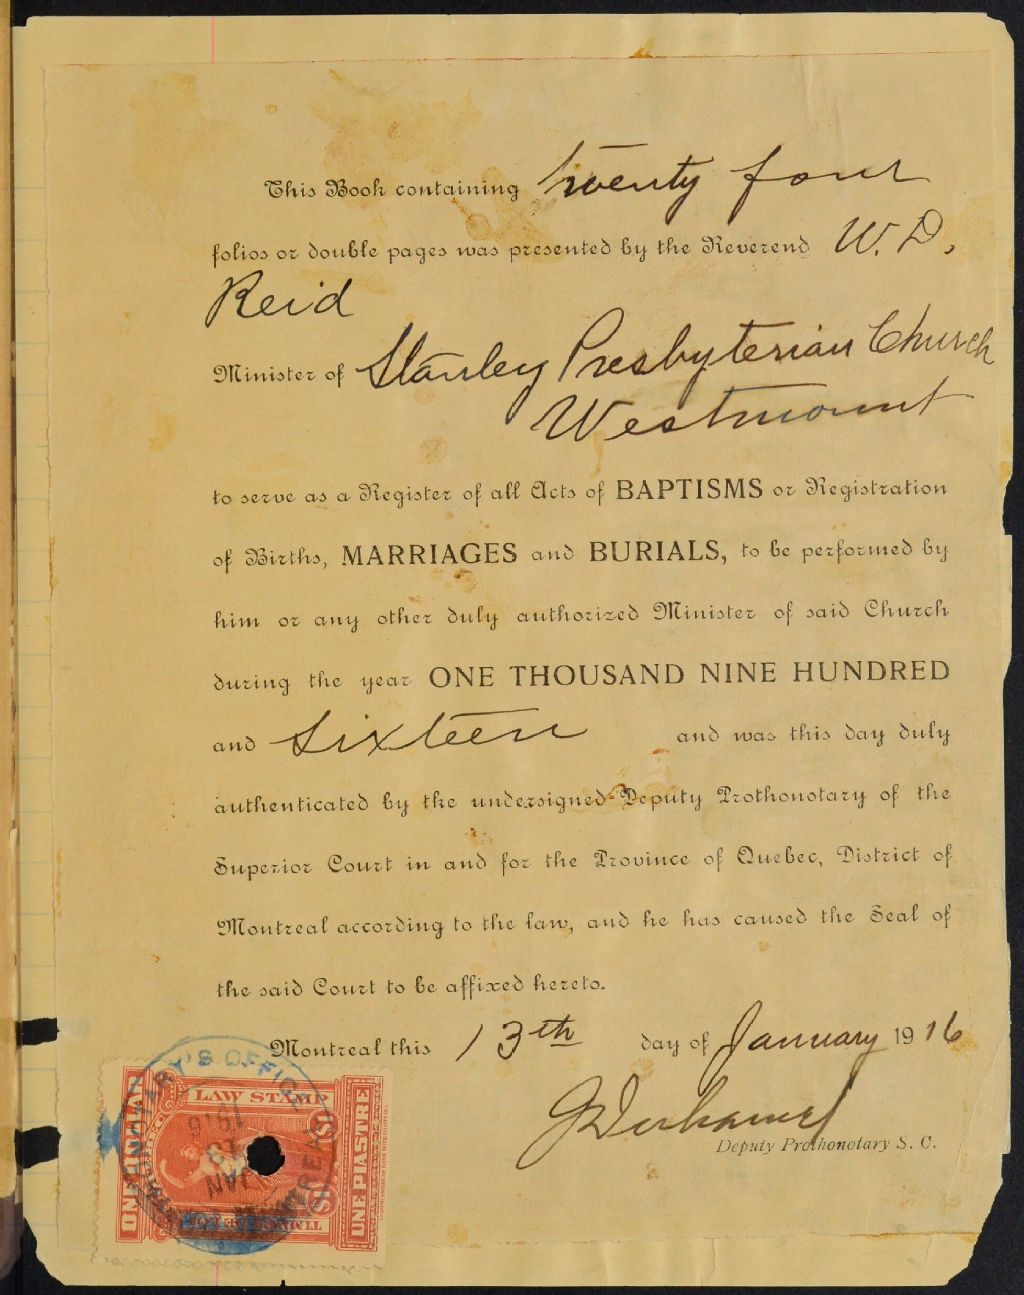 This Book containing twenty four
folios or double pages was presented by the Reverend W. D.
Reid
Minister of Stanley Presbyterian Church
Westmount
to serve as a Register of all Acts of BAPTISMS or Registration
of Births, MARRIAGES and BURIALS, to be performed by
him or any other duly authorized Minister of said Church
during the year ONE THOUSAND NINE HUNDRED
and Sixteen and was this day duly
authenticated by the undersigned Deputy Prothonotary of the
Superior Court in and for the Province of Quebec, District of
Montreal according to the law, and he has caused the Seal of
the said Court to be affixed hereto.
Montreal this 13th day of January 1916
Deputy Prothonotary S. C.
LAW STAMP
$1 $1
ONE DOLLAR
UNE PIASTRE
OFFICE
1916
13
JAN